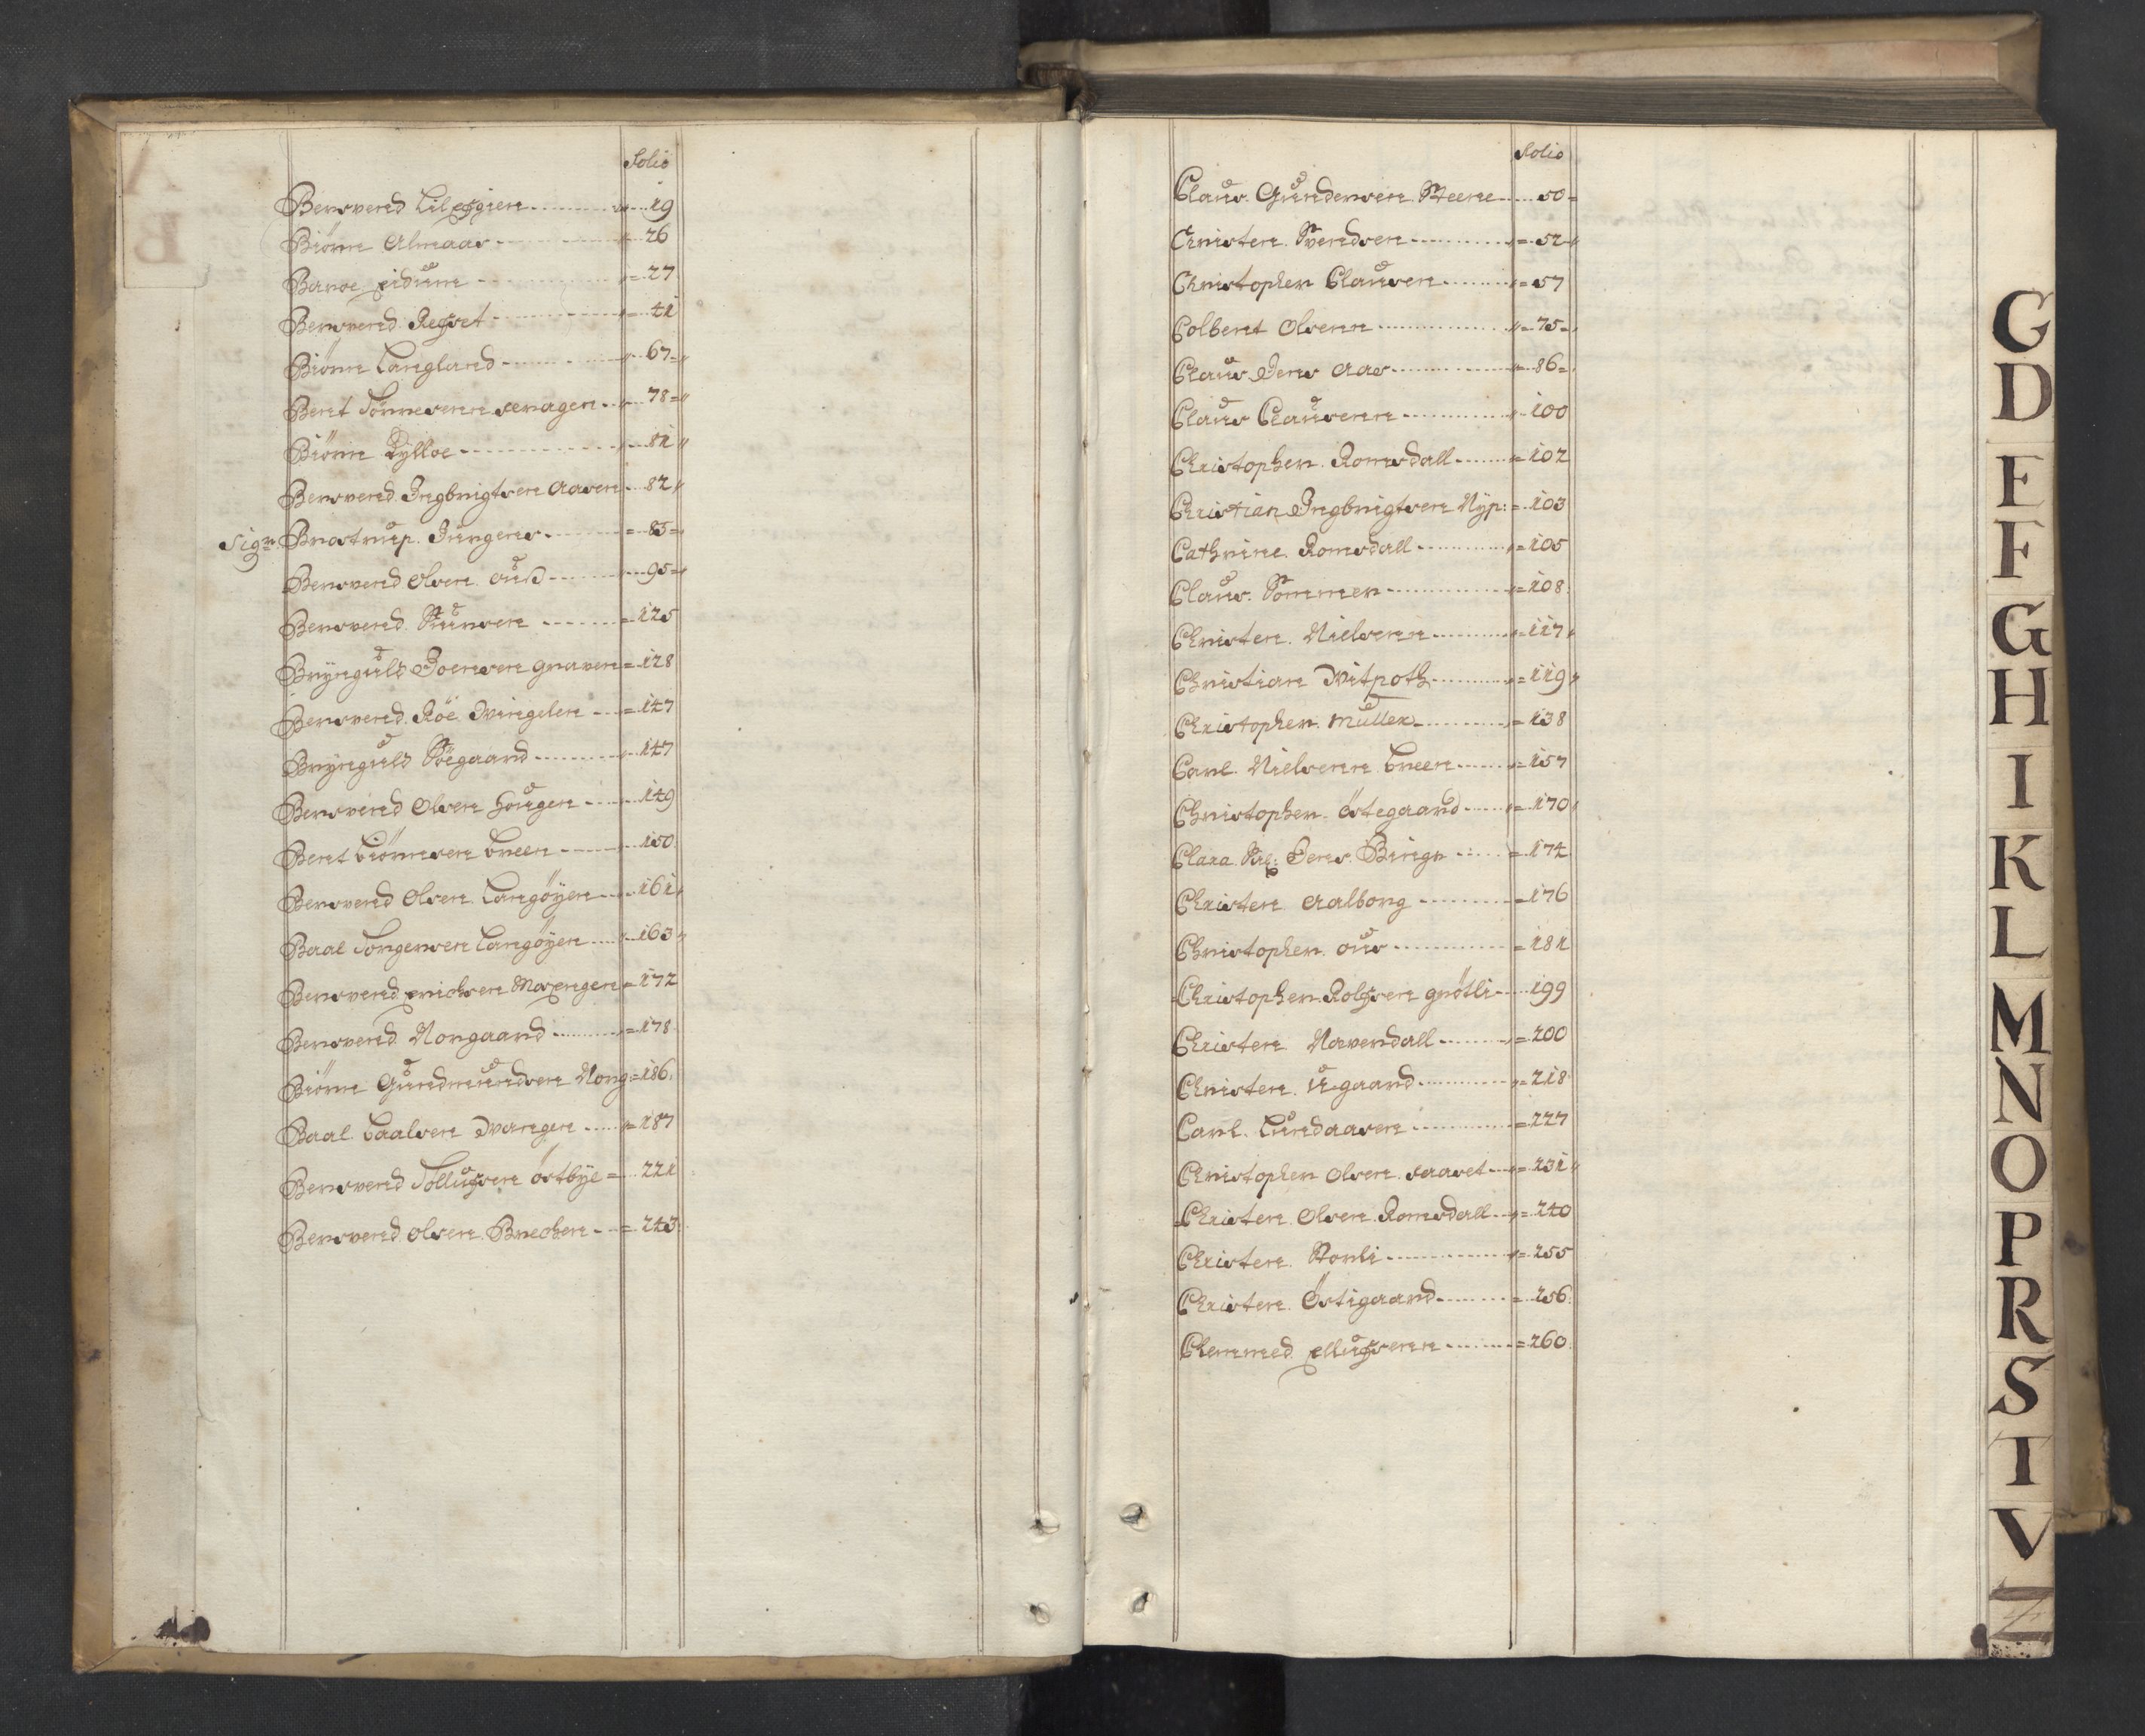 Folio
Bersvend Lilefgien 19
Biörn Almaas 26
Baroe Eidum 27
Bersvend Refset 41
Biörn Langland 67
Bent Tönnesen
78
Biörn Kylloe 81
Bersvend Ingbrigtsen Aasen 82
Sigr Brostrup Jürgens 83
Bersvend Olsen Ous 95
Bersvend Siursen 125
Bryngüld Joensen Graven 128
Bersvend Röe Tvingelen 147
Bryngüld Söegaard 147
Bersvend Olsen Hougen 149
Bent Biörnsen Breen 150
Bersvend Olsen Langöÿen 161
Baal Torgersen Langöÿen 163
Bersvend Erichsen Mosengen 172
Bersvend Norgaard 178
Biörn Gundmundsen Norg 186
Baal Baalsen Vangen 187
Bersvend Tollufsen Östbÿe 221
Bersvend Olsen Brechen 243
Folio
Claus Gundersen Steene 50
Christen Svendsen 52
Christopher Clausen 57
Colbent Olsenn 75
Claus Jens Aas 86
Claus Clausenn 100
Christopher Romsdall 102
Christian Ingbrigtsen Nyp: 103
Cathrine Romsdall 105
Claus Sommer 108
Christen Nielsenn 117
Christian Vitpoth 119
Christopher Müller 138
Carl Nielsenn Breen 157
Christopher Östegaard 170
Clara Sal: Jens Bings 174
Christen Aalborg 176
Christopher Ous 181
Christopher Rolfsen Grötli 199
Christen Naverdall 200
Christen Ugaard 218
Carl Lundaasen 227
Christopher Olsen Faaset 231
Christen Olsen Romsdall 240
Christen Storli 255
Christen Östigaard 256
Clemmed Ellufsenn 260
A
B
C
D
E
F
G
H
I
K
L
M
N
O
P
R
S
T
V
Z